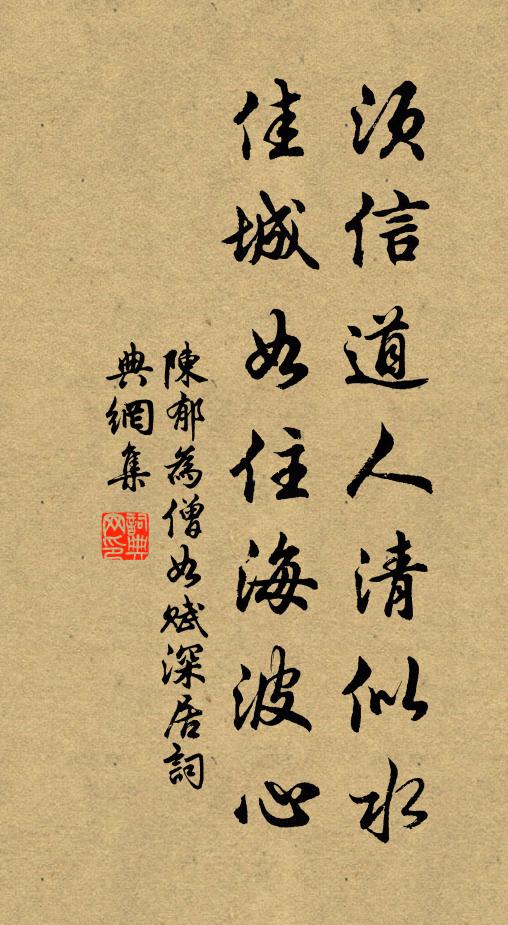 須信道人清似水
佳城如住海波心
陳郁為僧如賦深居詞
典網集
詞典
網印